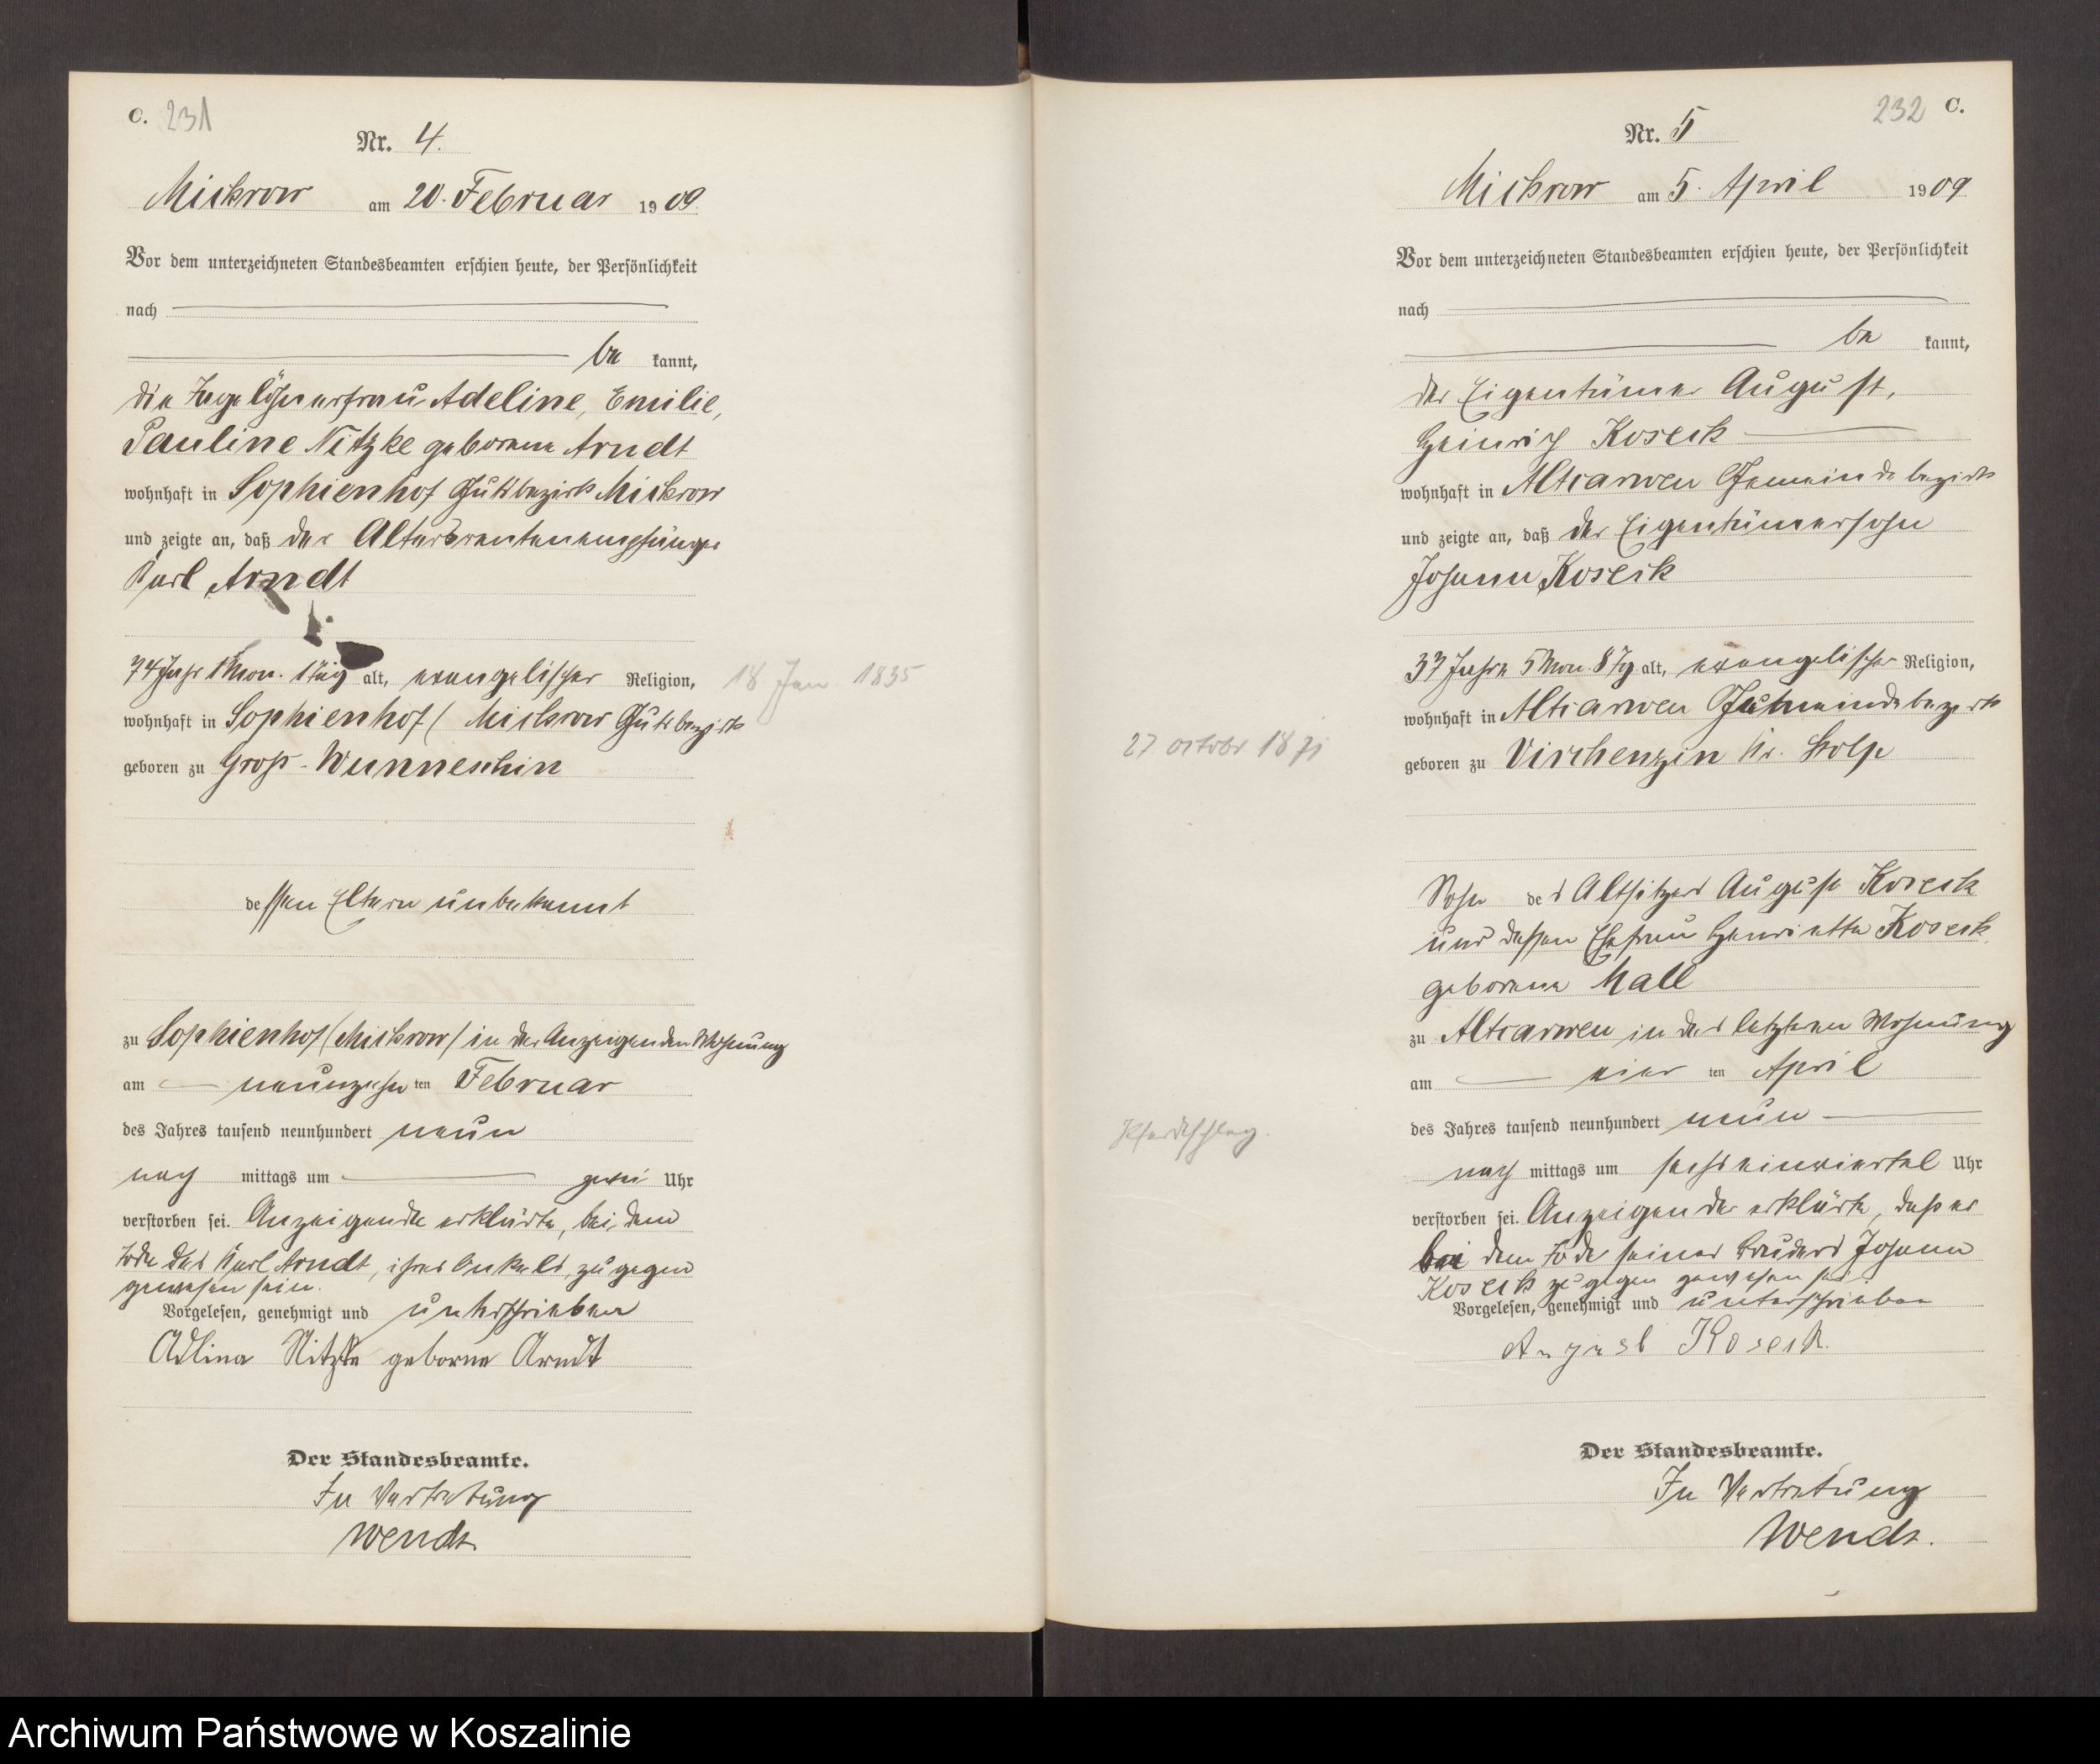 C. 231
Nr. 4.
Mickrow am 20. Februar 1909
Vor dem unterzeichneten Standesbeamten erschien heute, der Persönlichkeit
nach
be kannt,
die Tagelöhnerfrau Adeline, Emilie,
Pauline Nitzke geborene Arndt
wohnhaft in Sophienhof Gutsbezirk Mickrow
und zeigte an, daß der Altersrentenempfänger
Karl Arndt
74 Jahr 1 Mon. 1 Tag alt, evangelischer Religion,
18 Jan. 1835
wohnhaft in Sophienhof (Mickrow Gutsbezirk
geboren zu Groß-Wunneschin
dessen Eltern unbekannt
zu Sophienhof (Mickrow) in der Anzeigenden Wohnung
am neunzehn ten Februar
des Jahres tausend neunhundert neun
nach mittags um zwei Uhr
verstorben sei. Anzeigende erklärte, bei dem
Tode des Karl Arndt, ihres Onkels, zugegen
gewesen sein.
Vorgelesen, genehmigt und unterschrieben
Adlina Nitzke geborne Arndt
Der Standesbeamte.
In Vertretung
Wendt
232 C.
Nr. 5
Mickrow am 5. April 1909
Vor dem unterzeichneten Standesbeamten erschien heute, der Persönlichkeit
nach
be kannt,
der Eigentümer August,
Heinrich Koseck
wohnhaft in Altcarwen Gemeindebezirk
und zeigte an, daß der Eigentümersohn
Johann Koseck
37 Jahre 5 Mon 8 Tg alt, evangelischer Religion,
wohnhaft in Altcarwen Gemeindebezirk
27 octobr 1871
geboren zu Virchenzin Kr. Stolp
Sohn des Altsitzers August Koseck
und dessen Ehefrau Henriette Koseck
geborene Mall
zu Altcarwen in des letzteren Wohnung
am vier ten April
des Jahres tausend neunhundert neun
Pferdeschlag.
nach mittags um sechseinviertel Uhr
verstorben sei. Anzeigender erklärte, daß er
bei dem Tode seines Bruders Johann
Koseck zugegen gewesen sei.
Vorgelesen, genehmigt und unterschrieben
August Koseck.
Der Standesbeamte.
In Vertretung
Wendt.
Archiwum Państwowe w Koszalinie